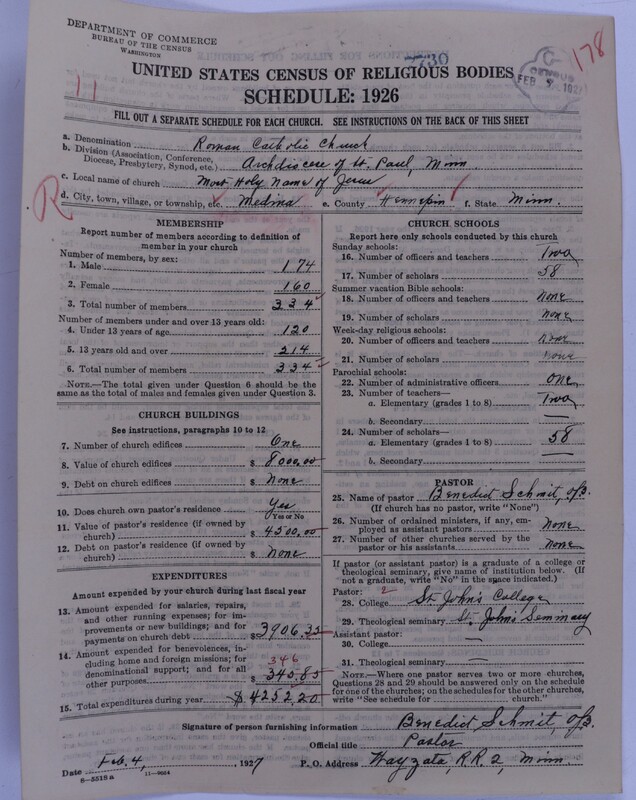 DEPARTMENT OF COMMERCE
BUREAU OF THE CENSUS
WASHINGTON
7730
178
CENSUS
FEB 5 1927
11
UNITED STATES CENSUS OF RELIGIOUS BODIES
SCHEDULE: 1926
FILL OUT A SEPARATE SCHEDULE FOR EACH CHURCH. SEE INSTRUCTIONS ON THE BACK OF THIS SHEET
a. Denomination Roman Catholic Church
b. Division (Association, Conference, Diocese, Presbytery, Synod, etc.) Archdiocese of St. Paul, Minn
c. Local name of church Most Holy Name of Jesus
R
d. City, town, village, or township, etc. Medina e. County Hennepin f. State Minn.
MEMBERSHIP
Report number of members according to definition of
member in your church
Number of members, by sex:
1. Male 174
2. Female 160
3. Total number of members 334
Number of members under and over 13 years old:
4. Under 13 years of age 120
5. 13 years old and over 214
6. Total number of members 334
NOTE.—The total given under Question 6 should be
same as the total of males and females given under Question 3.
CHURCH BUILDINGS
See instructions, paragraphs 10 to 12
7. Number of church edifices One
8. Value of church edifices $ 8000.00
9. Debt on church edifices $ None
10. Does church own pastor's residence? Yes
Yes or No
11. Value of pastor's residence (if owned by
church) $ 4500.00
12. Debt on pastor's residence (if owned by
church) $ None
EXPENDITURES
Amount expended by your church during last fiscal year
13. Amount expended for salaries, repairs,
and other running expenses; for im-
provements or new buildings; and for
payments on church debt $ 3906.35
14. Amount expended for benevolences, in-
cluding home and foreign missions; for
denominational support; and for all
346
other purposes $ 345.85
15. Total expenditures during year $ 4252.20
CHURCH SCHOOLS
Report here only schools conducted by this church
Sunday schools:
16. Number of officers and teachers Two
17. Number of scholars 58
Summer vacation Bible schools:
18. Number of officers and teachers None
19. Number of scholars None
Week-day religious schools:
20. Number of officers and teachers None
21. Number of scholars None
Parochial schools:
22. Number of administrative officers One
23. Number of teachers—
a. Elementary (grades 1 to 8) Two
b. Secondary —
24. Number of scholars—
a. Elementary (grades 1 to 8) 58
b. Secondary —
PASTOR
25. Name of pastor Benedict Schmit, O.S.B.
(If church has no pastor, write "None")
26. Number of ordained ministers, if any, em-
ployed as assistant pastors None
27. Number of other churches served by the
pastor or his assistants None
If pastor (or assistant pastor) is a graduate of a college or
theological seminary, give name of institution below. (If
not a graduate, write "No" in the space indicated.)
Pastor: 2
28. College St. John's College
29. Theological seminary St. John's Seminary
Assistant pastor:
30. College —
31. Theological seminary —
NOTE.—Where one pastor serves two or more churches,
Questions 28 and 29 should be answered only on the schedule
for one of the churches; on the schedules for the other churches,
write "See schedule for church."
Signature of person furnishing information Benedict Schmit, O.S.B.
Official title Pastor
Date Feb. 4, 1927 P. O. Address Wayzata, R.R. 2, Minn.
8—5518a 11—9024